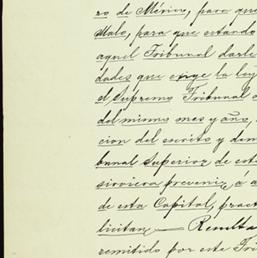 ro de México, para que
Malo, para que estando
aquel Tribunal darle
dades que exige la ley
el Supremo Tribunal
del mismo mes y año,
cion del escrito y dem
bunal Superior de est
sirviera prevenir á
de esta Capital, pract
licitan — Resulta
remitido por este Tri